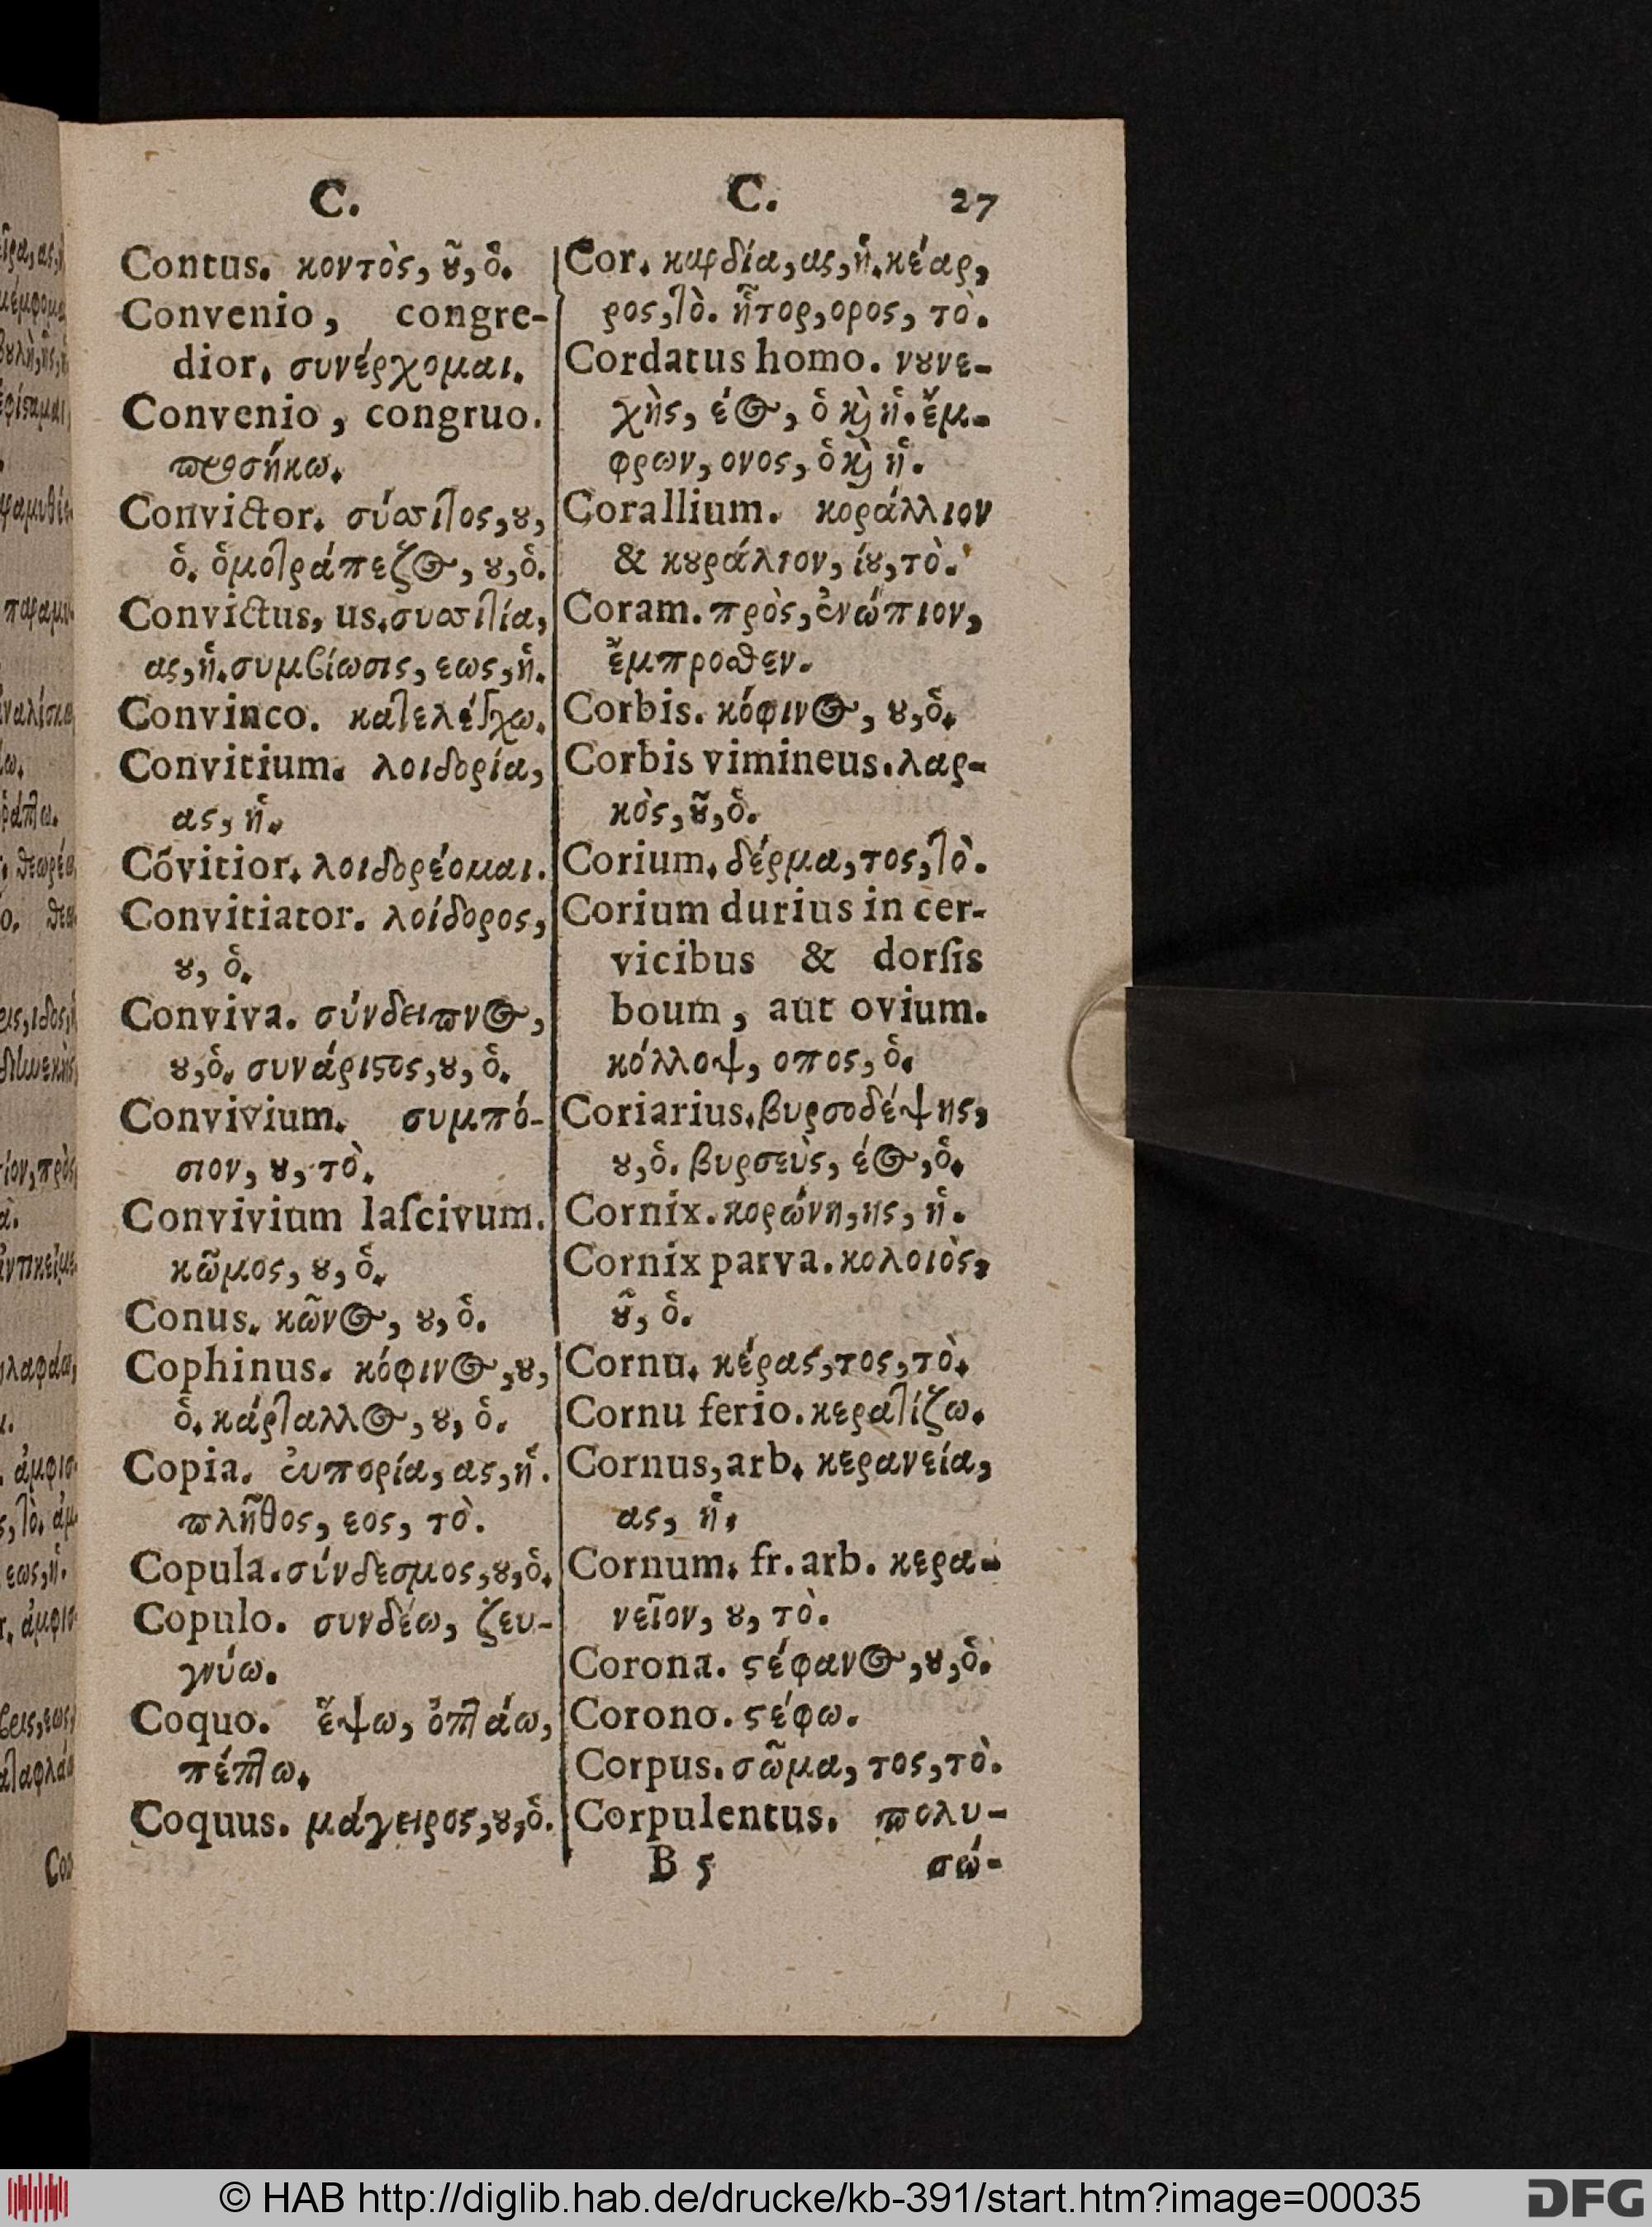 C.
Contus. κοντὸς, ȣ͂, ὁ.
Convenio, congre-
dior. συνέρχομαι.
Convenio, congruo.
προσήκω.
Convictor. σύσσιτος, ȣ,
ὁ. ὁμοτράπεζος, ȣ, ὁ.
Convictus, us. συσσιτία,
ας, ἡ. συμβίωσις, εως, ἡ.
Convinco. κατελέγχω.
Convitium. λοιδορία,
ας, ἡ.
Cõvitior. λοιδορέομαι.
Convitiator. λοίδορος,
ȣ, ὁ.
Conviva. σύνδειπνος,
ȣ, ὁ. συνάριστος, ȣ, ὁ.
Convivium. συμπό-
σιον, ȣ, τὸ.
Convivium laſcivum.
κῶμος, ȣ, ὁ.
Conus. κῶνος, ȣ, ὁ.
Cophinus. κόφινος, ȣ,
ὁ. κάρταλλος, ȣ, ὁ.
Copia. ἐυπορία, ας, ἡ.
πλῆθος, εος, τὸ.
Copula. σύνδεσμος, ȣ, ὁ.
Copulo. συνδέω, ζευ-
γνύω.
Coquo. ἕψω, ὀπτάω,
πέπτω.
Coquus. μάγειρος, ȣ, ὁ.
C. 27
Cor. καρδία, ας, ἡ. κέαρ,
ρος, τὸ. ἦτορ, ορος, τὸ.
Cordatus homo. νȣνε-
χὴς, έος, ὁ ϗ ἡ. ἔμ-
φρων, ονος, ὁ ϗ ἡ.
Corallium. κοράλλιον
& κȣράλιον, ίȣ, τὸ.
Coram. πρὸς, ἐνώπιον,
ἔμπροσθεν.
Corbis. κόφινος, ȣ, ὁ.
Corbis vimineus. λαρ-
κὸς, ȣ͂, ὁ.
Corium. δέρμα, τος, τὸ.
Corium durius in cer-
vicibus & dorſis
boum, aut ovium.
κόλλοψ, οπος, ὁ.
Coriarius. βυρσοδέψης,
ȣ, ὁ. βυρσεὺς, έος, ὁ.
Cornix. κορώνη, ης, ἡ.
Cornix parva. κολοιὸς,
ȣ͂, ὁ.
Cornu. κέρας, τος, τὸ.
Cornu ferio. κερατίζω.
Cornus, arb. κερανεία,
ας, ἡ.
Cornum. fr. arb. κερα-
νεῖον, ȣ, τὸ.
Corona. στέφανος, ȣ, ὁ.
Corono. στέφω.
Corpus. σῶμα, τος, τὸ.
Corpulentus. πολυ-
B 5 σώ-
© HAB http://diglib.hab.de/drucke/kb-391/start.htm?image=00035
DFG